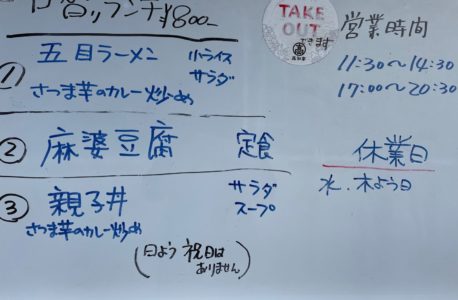 日替りランチ ¥800-
① 五目ラーメン 小ライス
サラダ
さつま芋のカレー炒め
② 麻婆豆腐 定食
③ 親子丼 サラダ
スープ
さつま芋のカレー炒め
(日よう 祝日は
ありません)
TAKE
OUT
できます
営業時間
11:30〜14:30
17:00〜20:30
休業日
水.木よう日